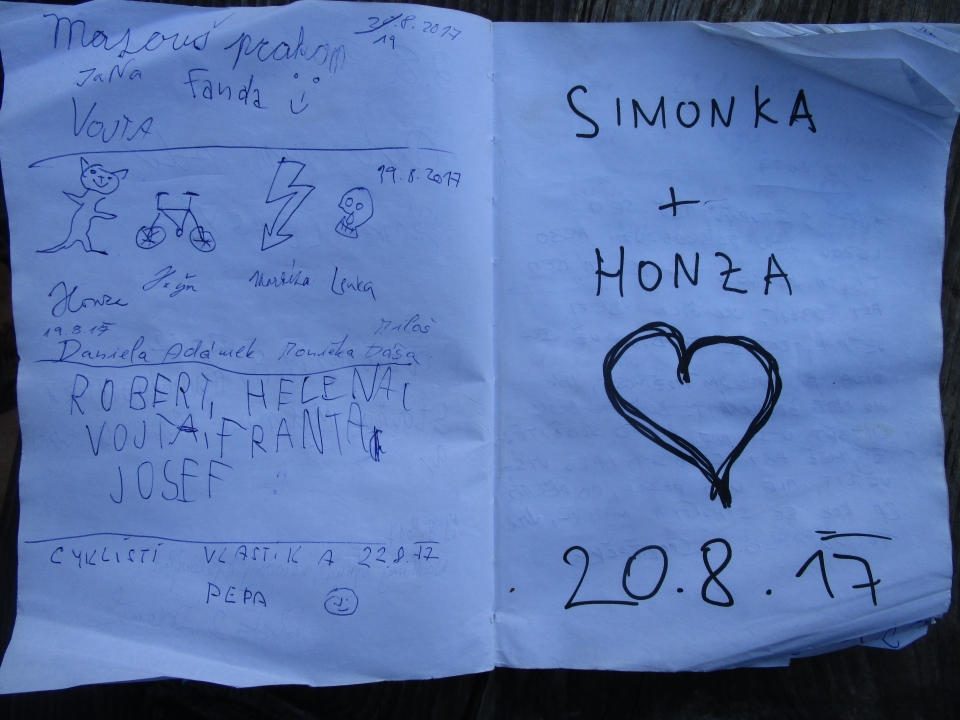 21.8.2017
19
JaNa Fanda
VOJTA
19.8.2017
Honza Markéta Lenka
19.8.17 Miloš
Daniela Adámek Monička Dáša
ROBERT, HELENA,
VOJTA, FRANTA,
JOSEF
CYKLISTI VLASTIK A 22.8.17
PEPA
SIMONKA
+
HONZA
20.8.17